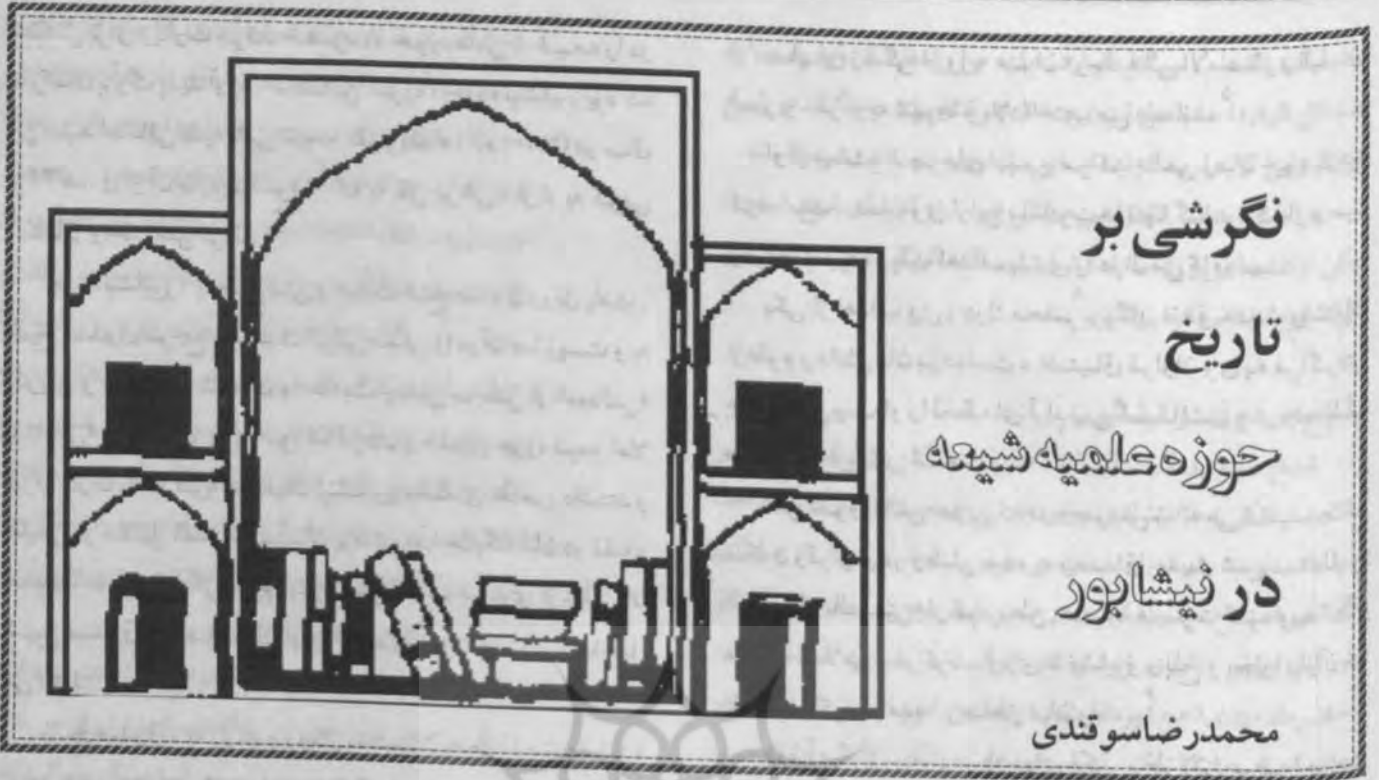 نگرشی بر
تاریخ
حوزه علمیه شیعه
در نیشابور
محمدرضا سوقندی